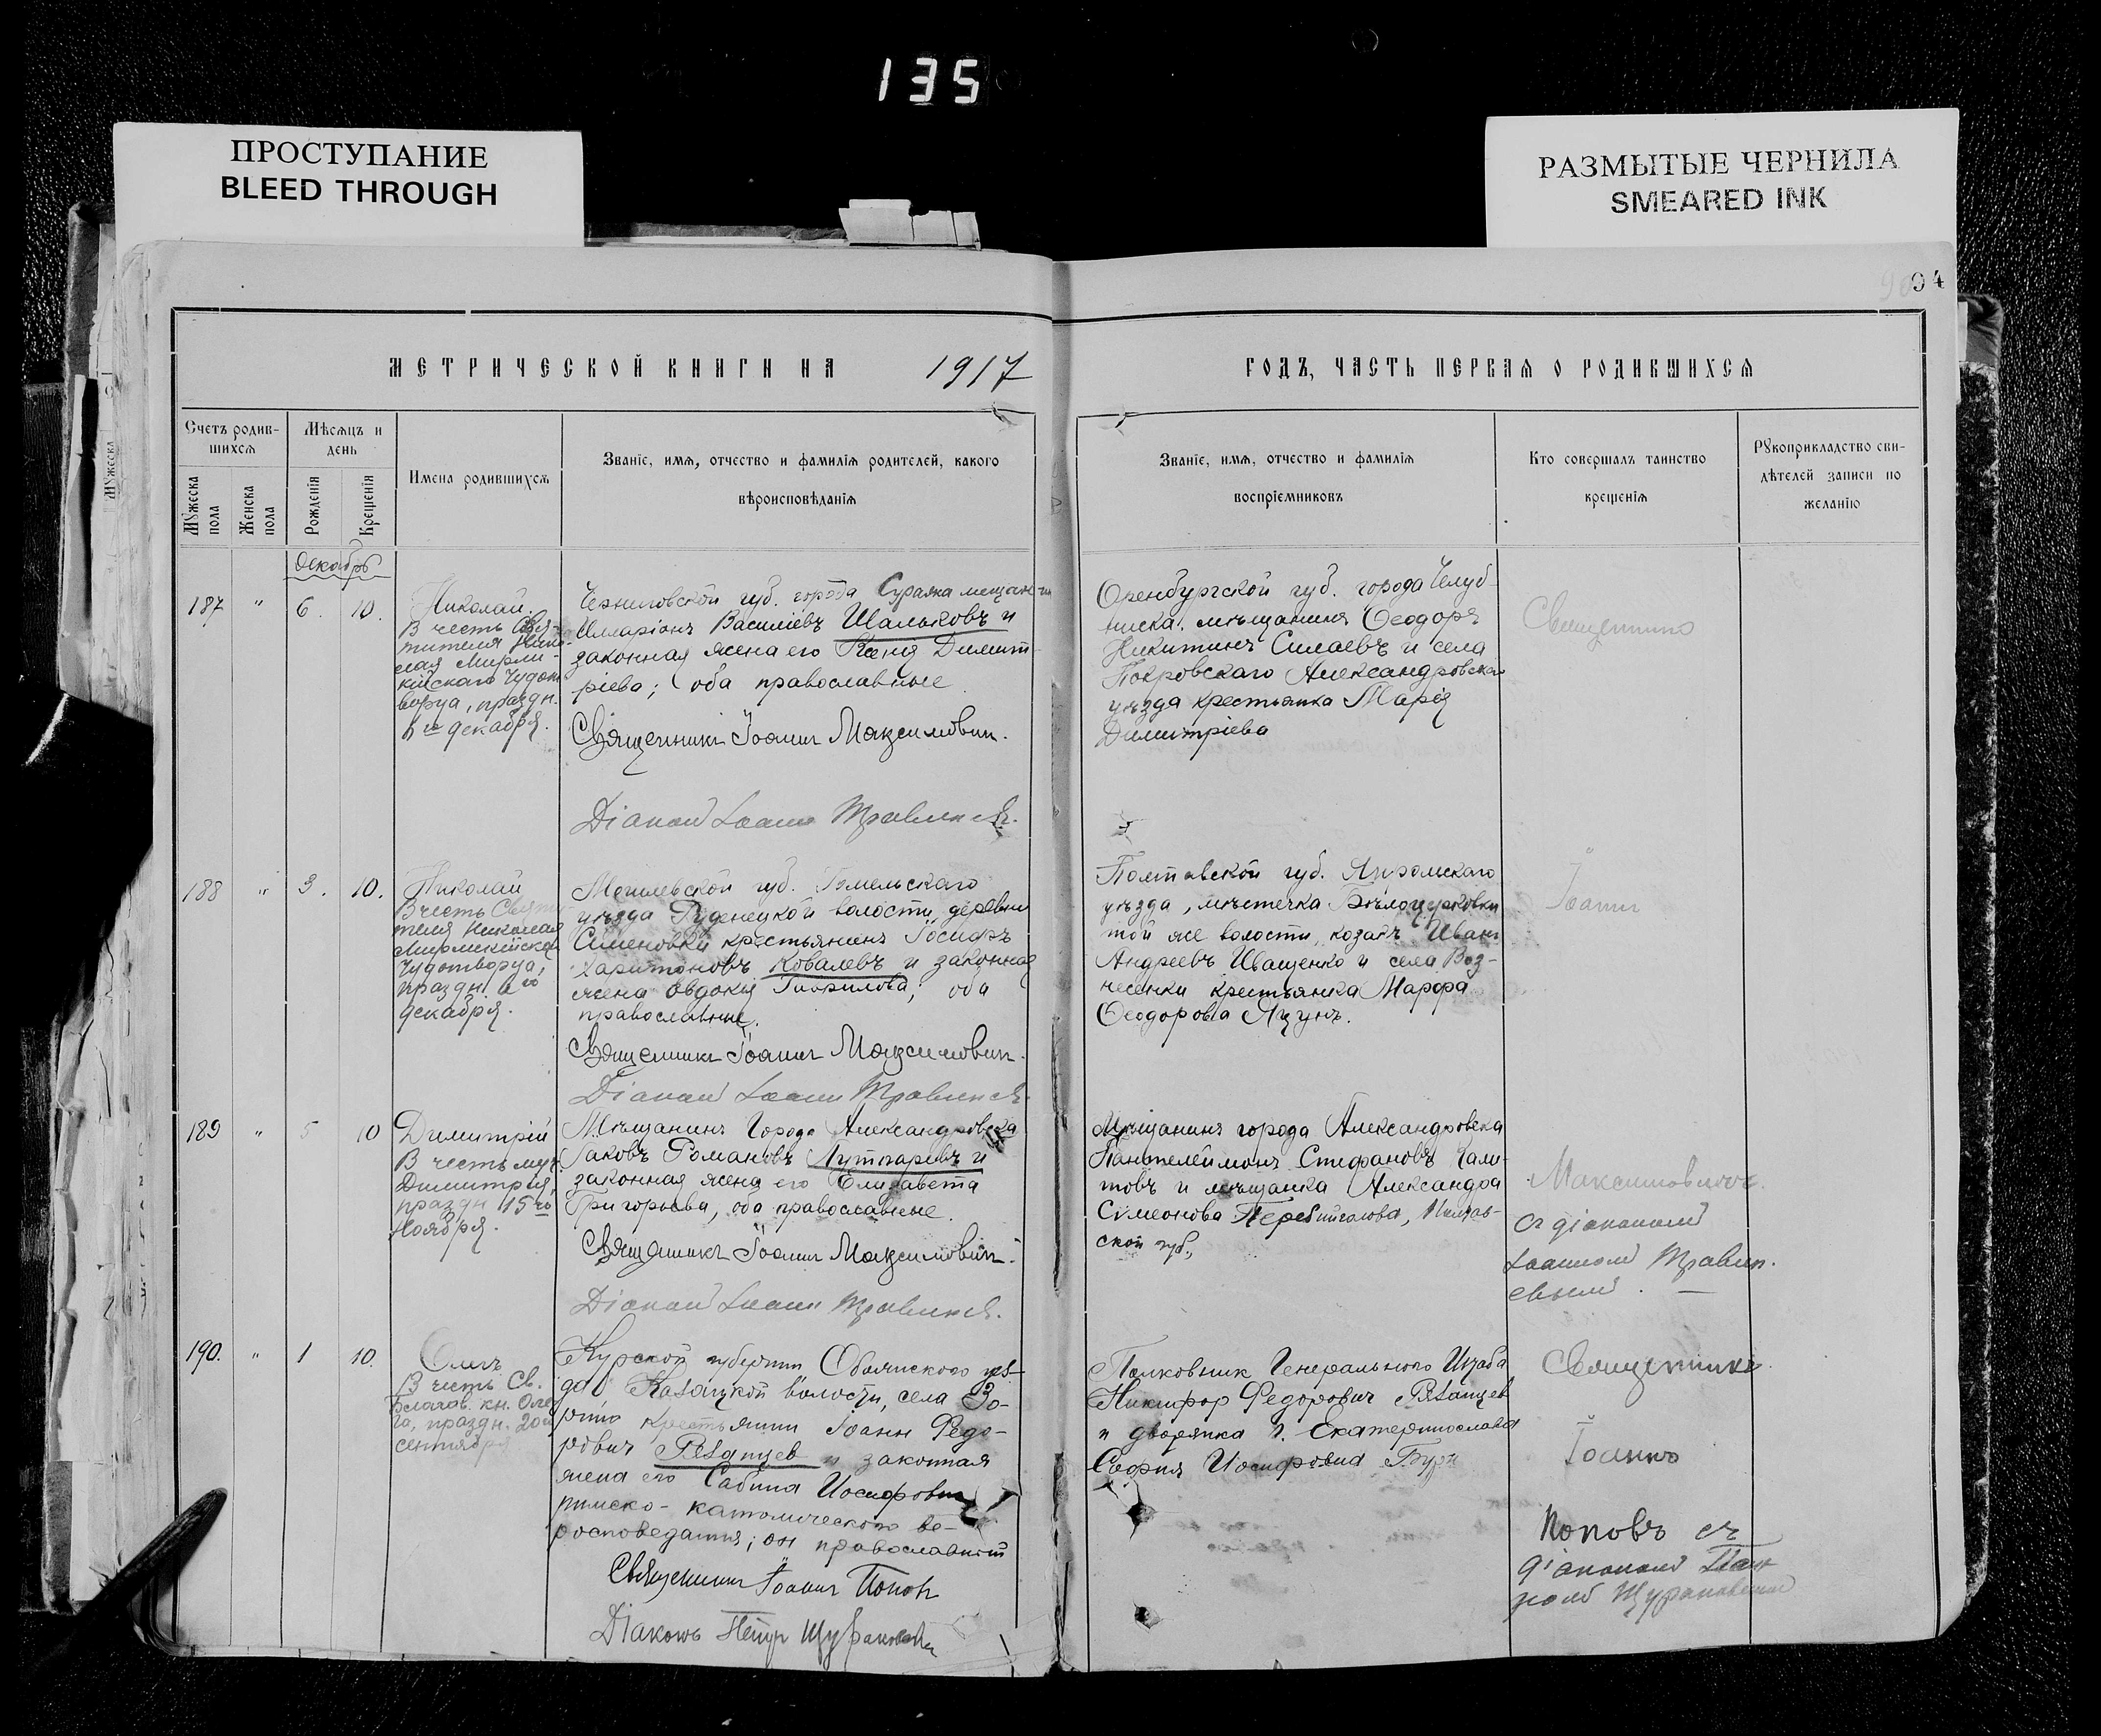 135
ПРОСТУПАНИЕ
BLEED THROUGH
РАЗМЫТЫЕ ЧЕРНИЛА
SMEARED INK
94
МЕТРИЧЕСКОЙ КНИГИ НА 1917
ГОДЪ, ЧАСТЬ ПЕРВАЯ О РОДИВШИХСЯ
Счетъ родив-
шихся
Мужеска пола
Женска пола
Мѣсяцъ и
день
Рожденія
Крещенія
Имена родившихся
Званіе, имя, отчество и фамилія родителей, какого
вѣроисповѣданія
Званіе, имя, отчество и фамилія
воспріемниковъ
Кто совершалъ таинство
крещенія
Рукоприкладство сви-
дѣтелей записи по
желанію
Декабрь
187 " 6. 10.
Николай.
В честь Свя-
тителя Нико-
лая Мирли-
кійскаго Чудот
ворца, праздн.
6го декабря.
Черниговской губ. города Суража мещанин
Илларіонъ Василіевъ Шальковъ и
законная жена его Ксенія Димит-
ріева; оба православные
Священникъ Іоаннъ Максимович.
Діаконъ Іоанн
Оренбургской губ. города Челяб-
инска мѣщанинъ Ѳеодоръ
Никитинъ Силаевъ и села
Покровскаго Александровскаго
уѣзда крестьянка Марія
Димитріева
Священникъ
188 " 3. 10.
Николай
В честь Святи
теля Николая
Мирликійскаго
Чудотворца,
праздн. 6го
декабря.
Могилевской губ. Гомельскаго
уѣзда Руденецкой волости, деревни
Семеновки крестьянинъ Іосифъ
Харитоновъ Ковалевъ и законная
жена Евдокія Гаврилова; оба
православные.
Священникъ Іоаннъ Максимович.
Діаконъ Іоанн
Полтавской губ.
уѣзда, мѣстечка Бѣлоцерковки
той же волости, козакъ Иванъ
Андреевъ Иващенко и села Воз-
несенки крестьянка Марфа
Ѳеодорова Яцунъ.
Іоаннъ
189 " 5 10
Димитрій
В честь муч.
Димитрія,
праздн 15го
Ноября.
Мѣщанинъ Города Александровска
Іаковъ Романовъ и
законная жена его Елизавета
Григорьева, оба православные.
Священникъ Іоаннъ Максимович.
Діаконъ Іоанн
Мѣщанинъ города Александровска
Пантелеймонъ Стефановъ Гали-
товъ и мѣщанка Александра
Симеонова Полтав-
ской губ.,
Максимовичъ.
съ діакономъ
Іоанномъ
190. " 1 10.
Олегъ
В честь Св.
Благов. кн. Оле
га, праздн. 20го
сентября
Курской губернии Обоянского уез-
да Казацкой волости, села Зо-
рино крестьянин Іоанн Федо-
рович Рязанцев и законная
жена его Сабина Иосифовна
римско-католического ве-
роисповедания; он православный
Священникъ Іоаннъ Попов
Діаконъ Петр
Полковник Генерального Штаба
Никифор Федорович Рязанцев
и дворянка г. Екатеринослава
София Иосифовна
Священникъ.
Іоаннъ
Поповъ съ
діакономъ